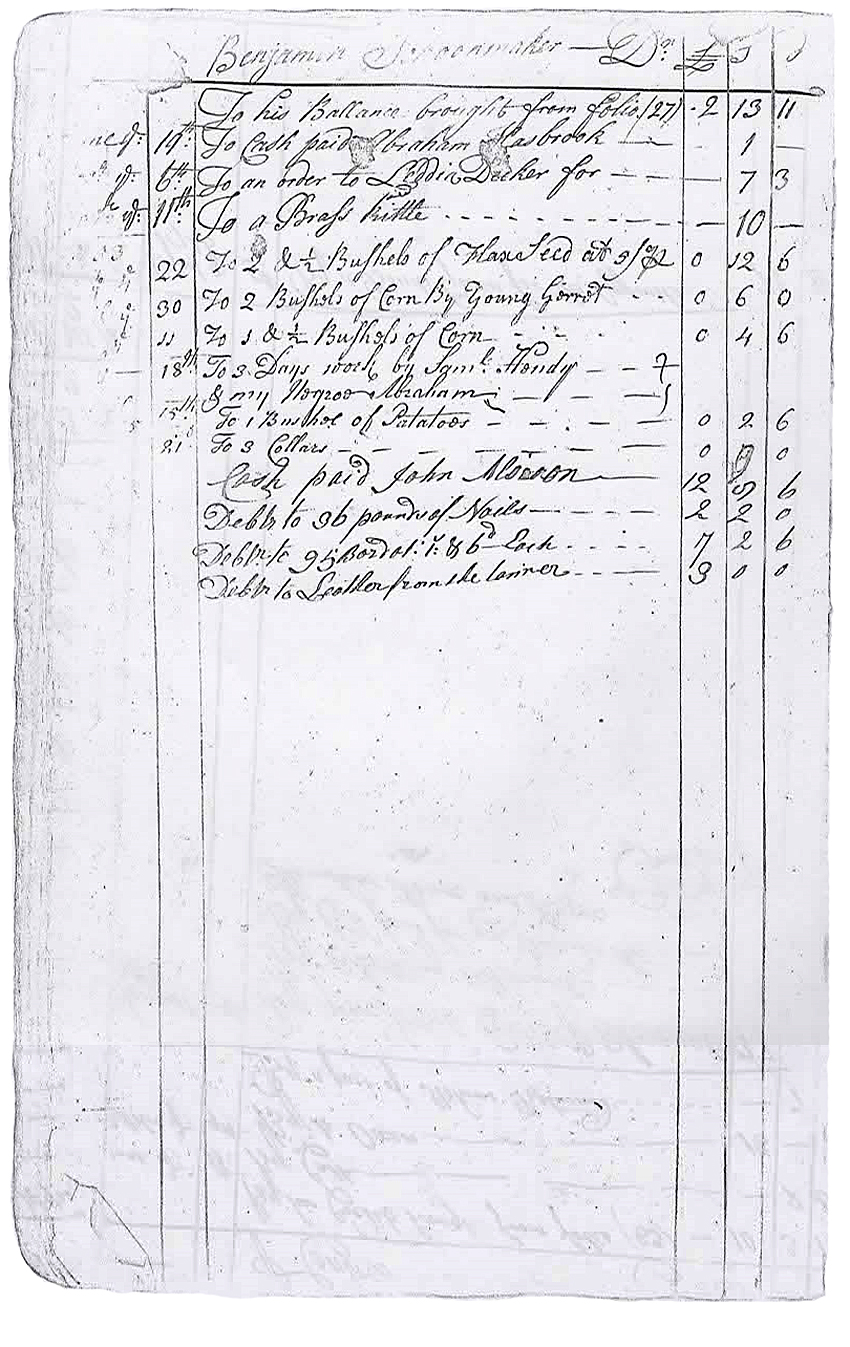 Benjamin Schoonmaker — Dr. £ S D
To his Ballance brought from folio (27) - 2 13 11
19th To Cash paid Abraham Hasbrook — — 1 —
6th To an order to Liddia Decker for — — — 7 3
11th To a Brass kittle - - - - - - - — 10 —
22 To 2 & ½ Bushels of Flax Seed at 5/ 0 12 6
30 To 2 Bushels of Corn By Young Gerret - - 0 6 0
11 To 1 & ½ Bushels of Corn - - - 0 4 6
18th To 3 Days work by Saml. Hendy — — }
& my Negroe Abraham — — —
15th To 1 Bushel of Potatoes - - - - - 0 2 6
21 To 3 Collars — - — - — - — 0 9 0
Cash paid John — 12 5 6
Debtr to 36 pounds of Nails — - - - — 2 2 0
Debtr to 95 Bord at 1s: & 6d Each - - - - 7 2 6
Debtr to Leather from the tanner - - - — 3 0 0